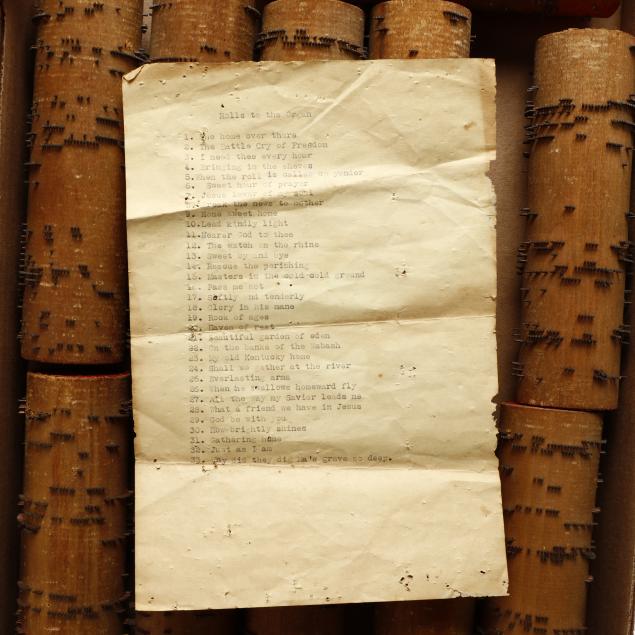 Rolls to the Organ
1. The home over there
2. The Battle Cry of Freedom
3. I need thee every hour
4. Bringing in the sheves
5. When the roll is called up yonder
6. Sweet hour of prayer
7. Jesus lover of my soul
8. Break the news to mother
9. Home sweet home
10. Lead kindly light
11. Nearer God to thee
12. The watch on the rhine
13. Sweet by and bye
14. Rescue the perishing
15. Masters in the cold cold ground
16. Pass me not
17. Softly and tenderly
18. Glory in his name
19. Rock of ages
20. Haven of rest
21. Beautiful garden of eden
22. On the banks of the Wabash
23. My old Kentucky home
24. Shall we gather at the river
25. Everlasting arms
26. When he swallows homeward fly
27. All the way my Savior leads me
28. What a friend we have in Jesus
29. God be with you
30. How brightly shines
31. Gathering home
32. Just as I am
33. Why did they dig Ma's grave so deep.